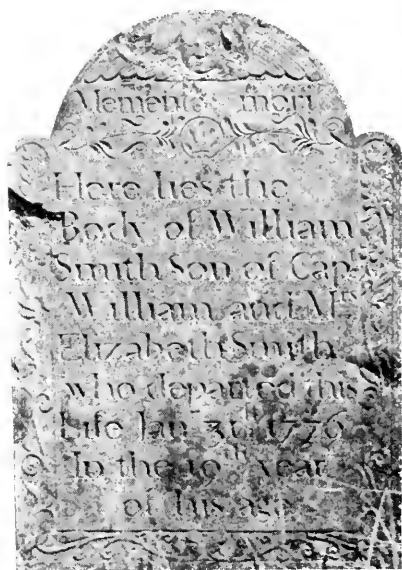 Memento mori
Here lies the
Body of William
Smith Son of Capt
William and Mrs
Elizabeth Smith
who departed this
Life Jan 31th 1776
In the 10th year
of his age